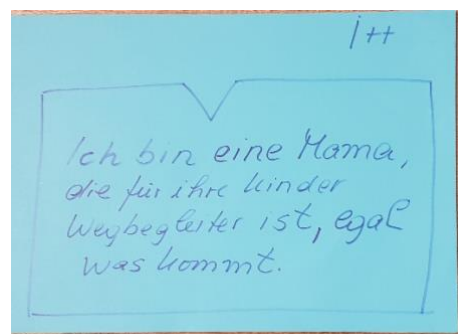 I++
Ich bin eine Mama,
die für ihre Kinder
Wegbegleiter ist, egal
was kommt.